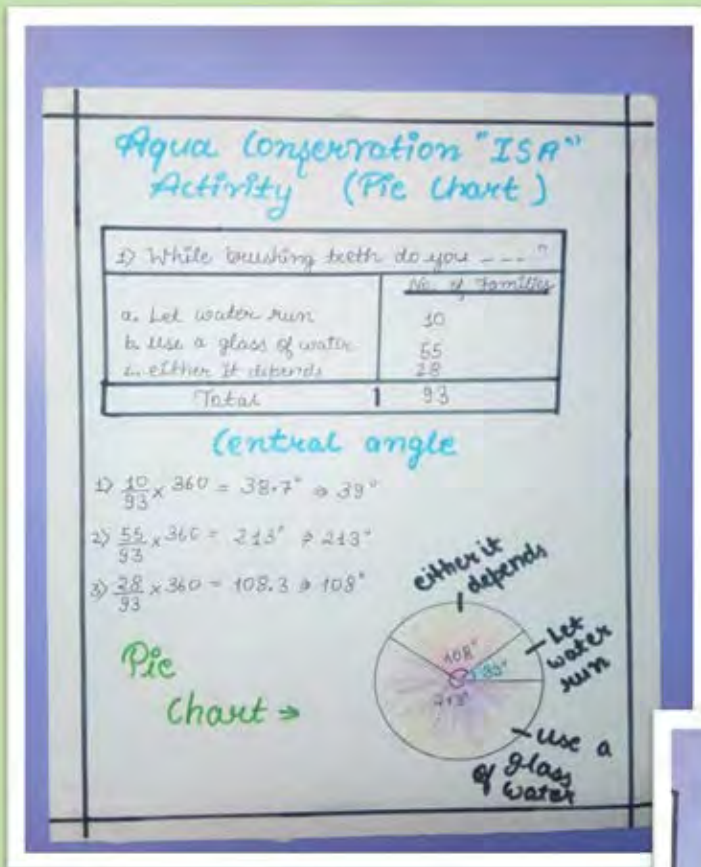 Aqua Conservation "ISA"
Activity (Pie Chart)
1) While brushing teeth do you ---- "
No. of families
a. Let water run 10
b. use a glass of water 55
c. either it depends 28
Total 93
Central angle
1) 10/93 x 360 = 38.7° ⇒ 39°
2) 55/93 x 360 = 213° ⇒ 213°
3) 28/93 x 360 = 108.3 ⇒ 108°
either it
depends
Let
water
run
108°
39°
213°
Pie
Chart ⇒
use a
glass
of water